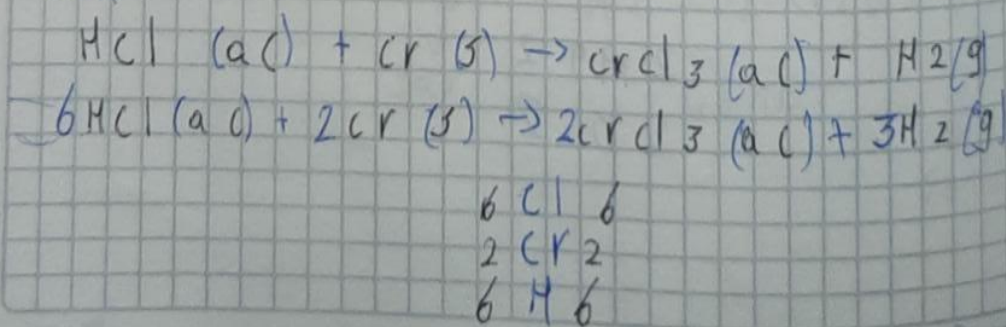 HCl (ac) + cr (s) → crcl3 (ac) + H2(g)
6HCl(ac) + 2cr (s) → 2crcl3 (ac) + 3H2(g)
6 Cl 6
2 Cr 2
6 H 6